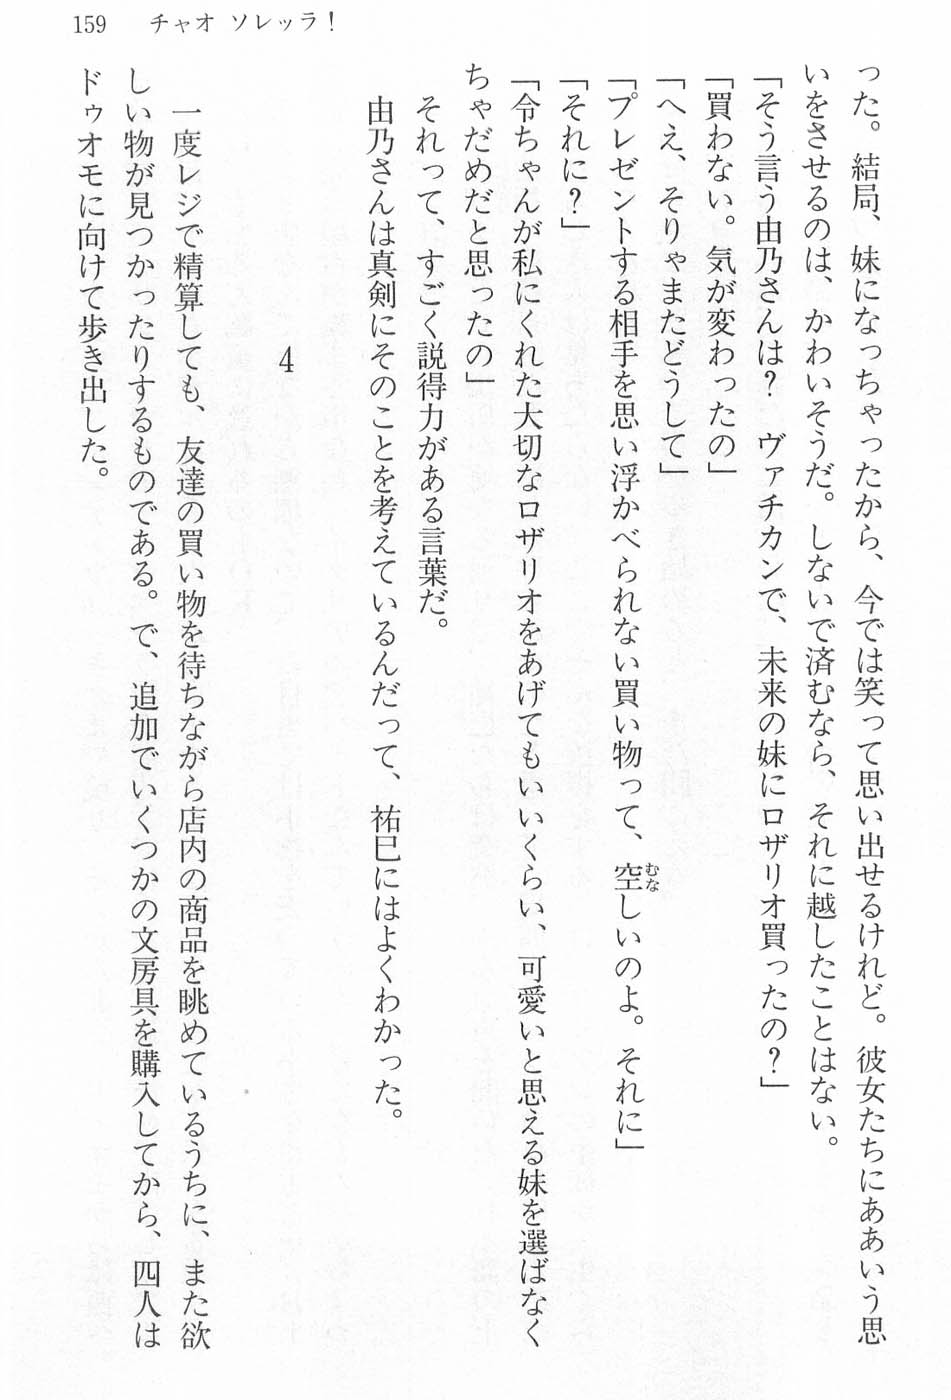 159　チャオ ソレッラ！
った。結局、妹になっちゃったから、今では笑って思い出せるけれど。彼女たちにああいう思
いをさせるのは、かわいそうだ。しないで済むなら、それに越したことはない。
「そう言う由乃さんは？　ヴァチカンで、未来の妹にロザリオ買ったの？」
「買わない。気が変わったの」
「へえ、そりゃまたどうして」
「プレゼントする相手を思い浮かべられない買い物って、空しいのよ。それに」
むな
「それに？」
「令ちゃんが私にくれた大切なロザリオをあげてもいいくらい、可愛いと思える妹を選ばなく
ちゃだめだと思ったの」
それって、すごく説得力がある言葉だ。
由乃さんは真剣にそのことを考えているんだって、祐巳にはよくわかった。
4
一度レジで精算しても、友達の買い物を待ちながら店内の商品を眺めているうちに、また欲
しい物が見つかったりするものである。で、追加でいくつかの文房具を購入してから、四人は
ドゥオモに向けて歩き出した。